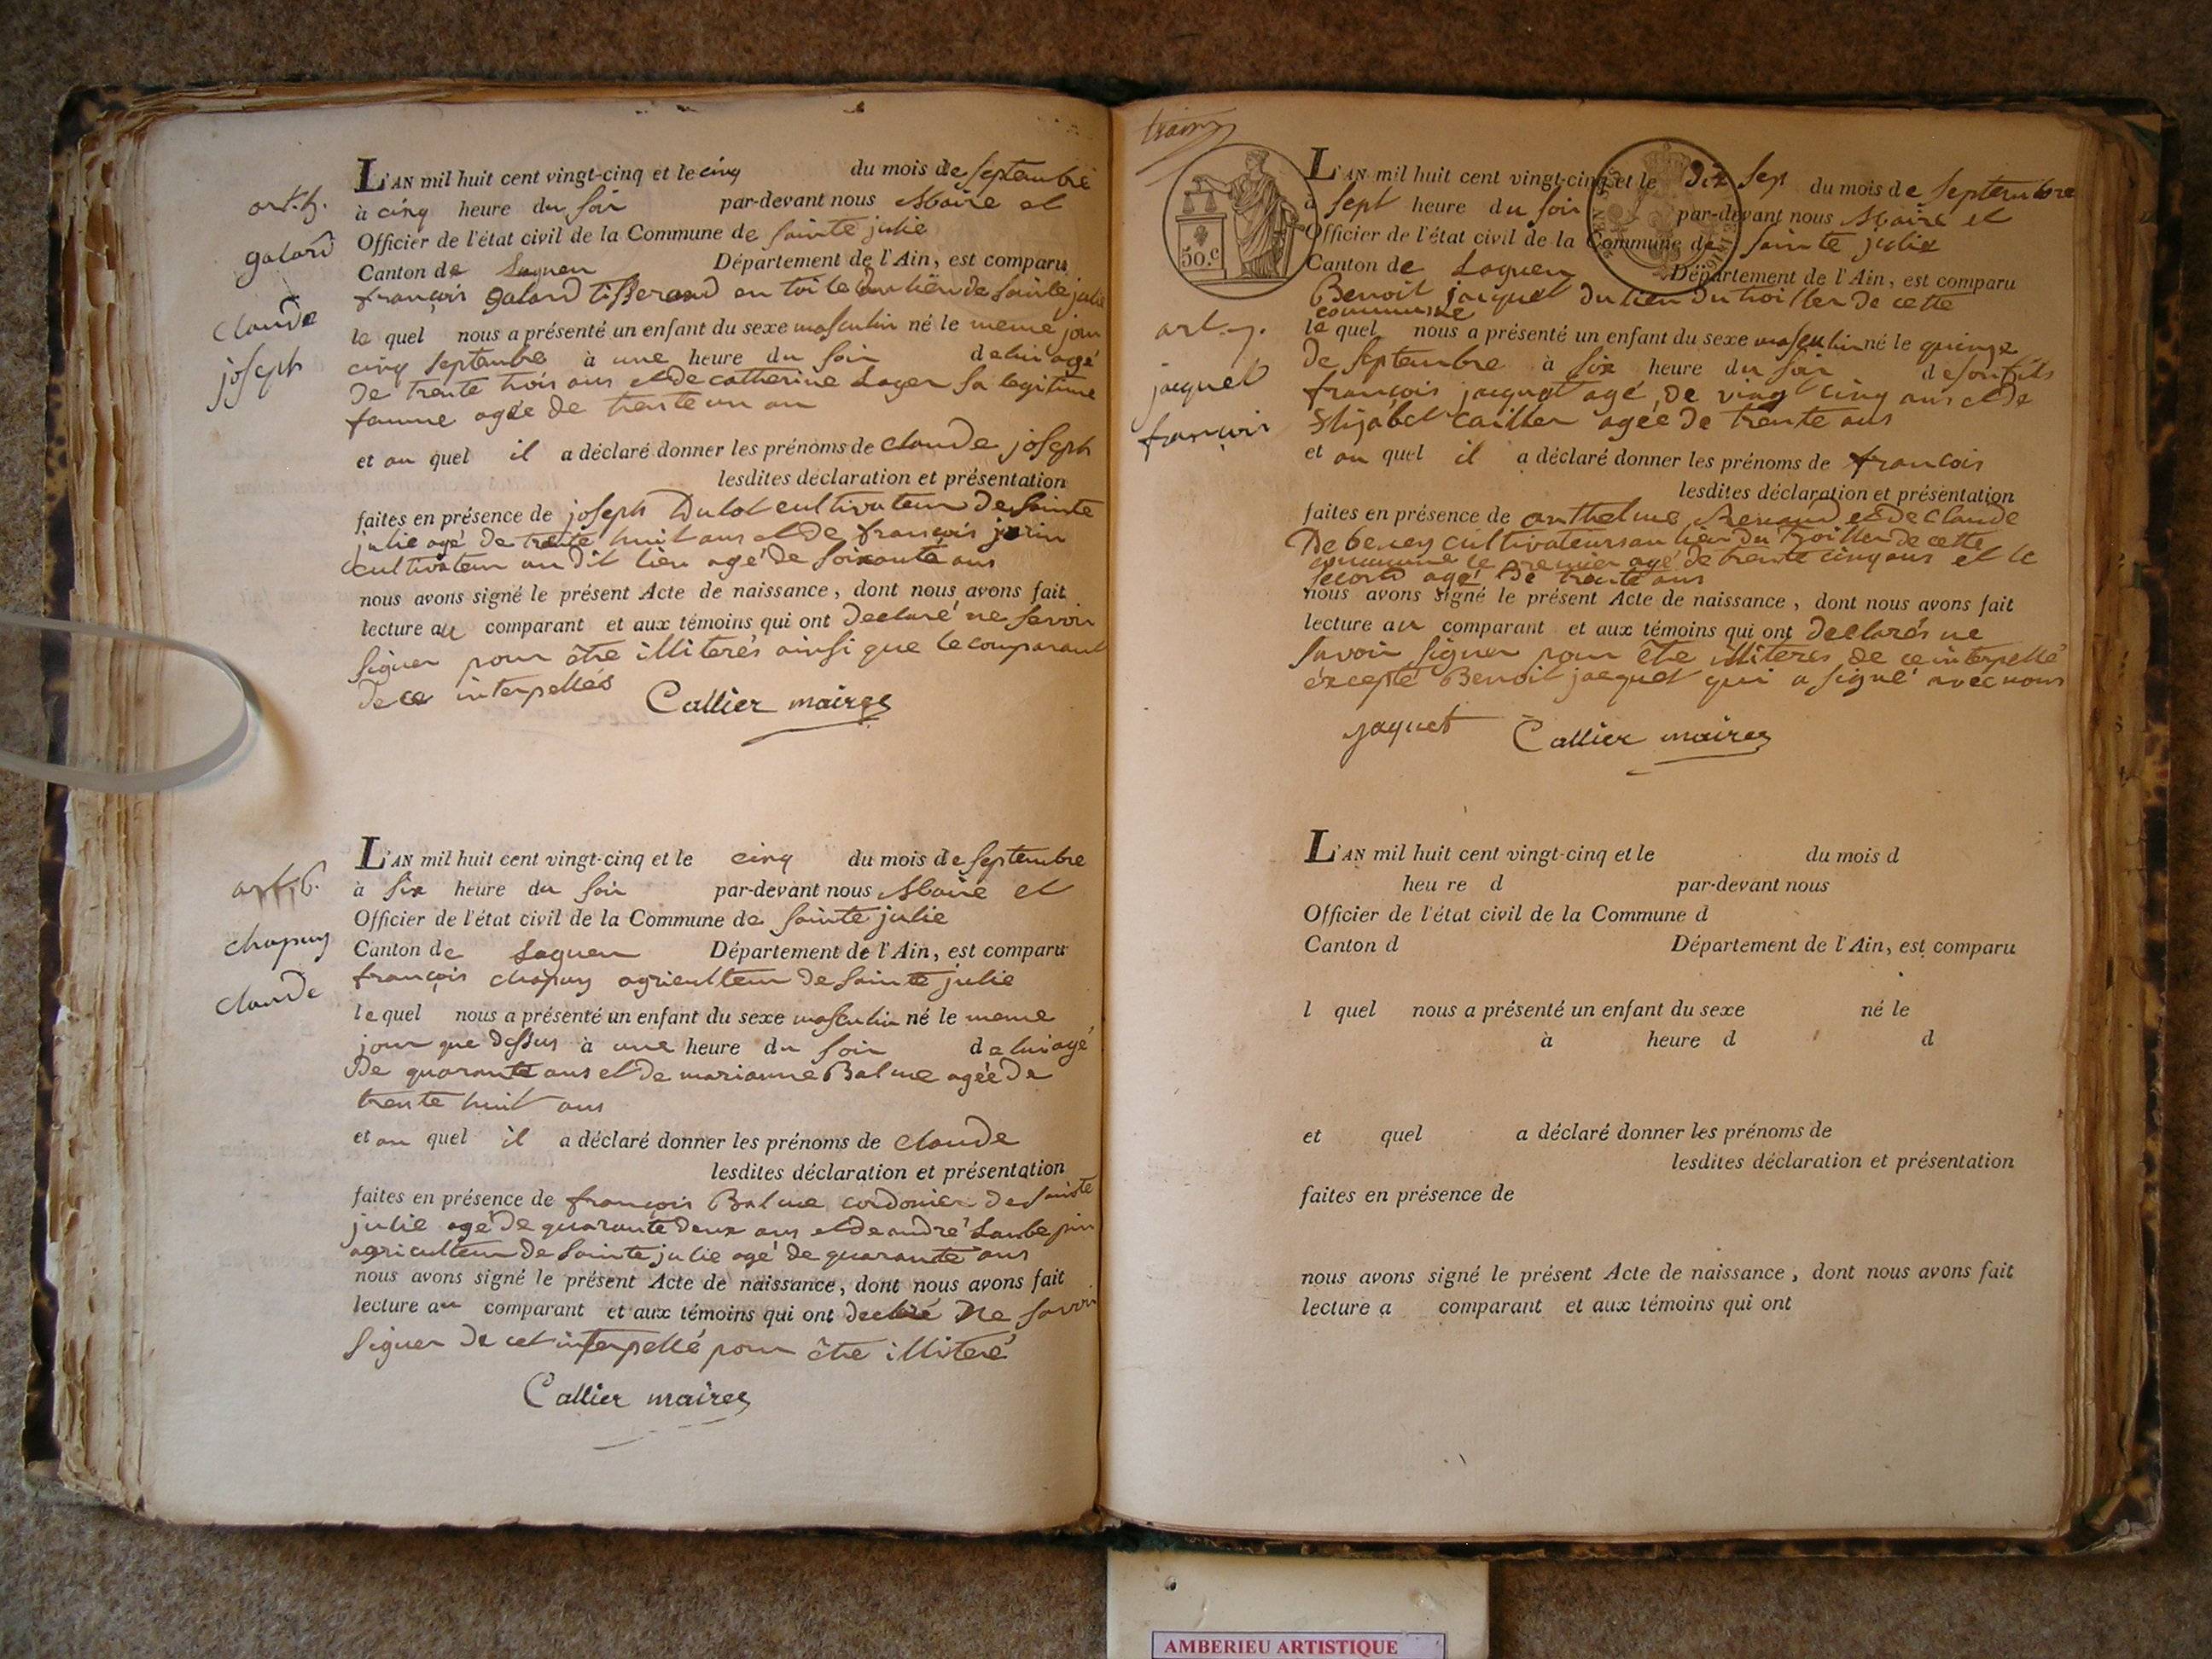 art. 5.
galand
claude
joseph
L'AN mil huit cent vingt-cinq et le cinq du mois de septembre
à cinq heure du soir par-devant nous Maire et
Officier de l'état civil de la Commune de sainte julie
Canton de Lagneu Département de l'Ain, est comparu
françois galand tisserand en toile au lieu de sainte julie
le quel nous a présenté un enfant du sexe masculin né le meme jour
cinq septembre à une heure du soir de lui agé
de trente trois ans et de catherine Loger sa legitime
famme agée de trente un an
et au quel il a déclaré donner les prénoms de claude joseph
lesdites déclaration et présentation
faites en présence de joseph Dulot cultivateur de sainte
julie agé de trente huit ans et de françois
cultivateur au dit lieu agé de soixante ans
nous avons signé le présent Acte de naissance, dont nous avons fait
lecture au comparant et aux témoins qui ont declaré ne savoir
signer pour être illiterés ainsi que le comparant
de ce interpellés Callier maire
art. 6.
chapuy
claude
L'AN mil huit cent vingt-cinq et le cinq du mois de septembre
à six heure du soir par-devant nous Maire et
Officier de l'état civil de la Commune de sainte julie
Canton de Lagneu Département de l'Ain, est comparu
françois chapuy agriculteur de sainte julie
le quel nous a présenté un enfant du sexe masculin né le meme
jour que dessus à une heure du soir de lui agé
de quarante ans et de marianne Balme agée de
trente huit ans
et au quel il a déclaré donner les prénoms de claude
lesdites déclaration et présentation
faites en présence de françois Balme cordonier de sainte
julie agé de quarante deux ans et de andré Laubepin
agriculteur de sainte julie agé de quarante ans
nous avons signé le présent Acte de naissance, dont nous avons fait
lecture au comparant et aux témoins qui ont declaré ne savoir
signer de cet interpellé pour être illiteré
Callier maire
50.c
art. 7.
jacquet
françois
L'AN mil huit cent vingt-cinq et le dix sept du mois de septembre
à sept heure du soir par-devant nous Maire et
Officier de l'état civil de la Commune de sainte julie
Canton de Lagneu Département de l'Ain, est comparu
Benoit jacquet du lieu du troiller de cette
commune
le quel nous a présenté un enfant du sexe masculin né le quinze
de septembre à six heure du soir de son fils
françois jacquet agé de vingt cinq ans et de
Elizabet cailler agée de trente ans
et au quel il a déclaré donner les prénoms de francois
lesdites déclaration et présentation
faites en présence de anthelme Renaud et de claude
De beney cultivateurs au lieu du troiller de cette
commune le premier agé de trente cinq ans et le
second agé de trente ans
nous avons signé le présent Acte de naissance, dont nous avons fait
lecture au comparant et aux témoins qui ont declarés ne
savoir signer pour être illiteres de ce interpellé
excepté Benoit jacquet qui a signé avec nous
jaquet Callier maire
L'AN mil huit cent vingt-cinq et le du mois d
heure d par-devant nous
Officier de l'état civil de la Commune d
Canton d Département de l'Ain, est comparu
l quel nous a présenté un enfant du sexe né le
à heure d d
et quel a déclaré donner les prénoms de
lesdites déclaration et présentation
faites en présence de
nous avons signé le présent Acte de naissance, dont nous avons fait
lecture a comparant et aux témoins qui ont
AMBERIEU ARTISTIQUE